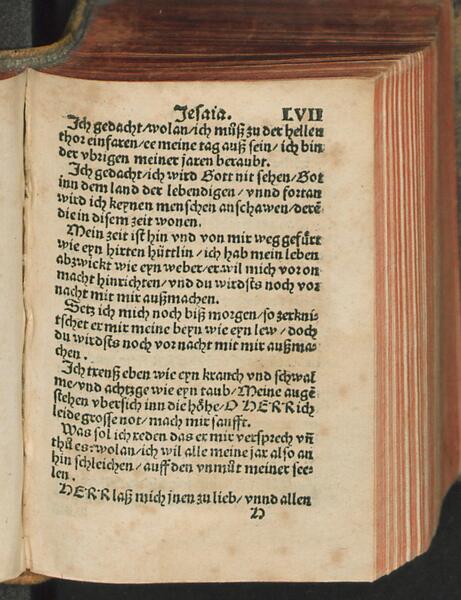 Jesaia. LVII
Ich gedacht/wolan/ich můß zu der hellen
thor einfaren/ee meine tag auß sein/ich bin
der vbrigen meiner jaren beraubt.
Ich gedacht/ich wird Gott nit sehen/Got
inn dem land der lebendigen/vnnd fortan
wird ich keynen menschen anschawen/derẽ
die in disem zeit wonen.
Mein zeit ist hin vnd von mir weg gefürt
wie eyn hirten hüttlin/ich hab mein leben
abzwickt wie eyn weber/er wil mich vor on
macht hinrichten/vnd du wirdsts noch vor
nacht mit mir außmachen.
Setz ich mich noch biß morgen/so zerkni-
tschet er mir meine beyn wie eyn lew/doch
du wirdsts noch vor nacht mit mir außma-
chen.
Ich trenß eben wie eyn kranch vnd schwal
me/vnd achtzge wie eyn taub/Meine augẽ
stehen vbersich inn die höhe/O HERR ich
leide grosse not/mach mir saufft.
Was sol ich reden das er mir versprech vñ
thů es: wolan/ich wil alle meine jar also an
hin schleichen/auff den vnmůt meiner see-
len.
HERR laß mich jnen zu lieb/vnnd allen
H